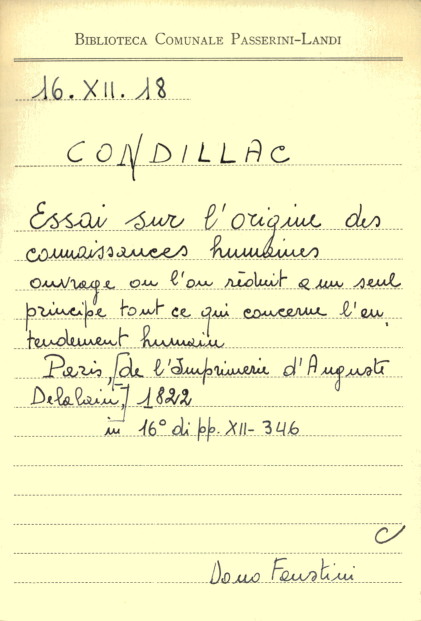 BIBLIOTECA COMUNALE PASSERINI-LANDI
16. XII. 18
CONDILLAC
Essai sur l'origine des
connaissances humaines
ouvrage ou l'on réduit a un seul
principe tout ce qui concerne l'en
tendement humain
Paris, [de l'Imprimerie d'Auguste
Delalain,] 1822
in 16° di pp. XII-346
C
Dono Faustini